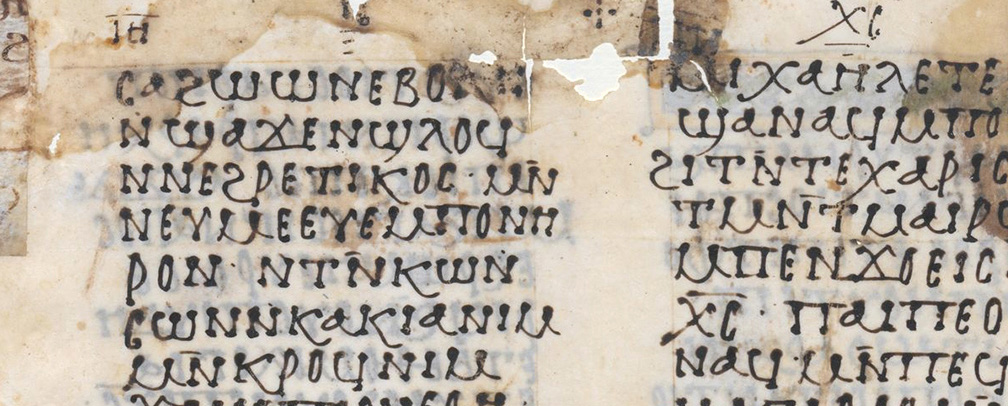 ⲓⲏ
ⲥⲁϩⲱⲱⲛⲉⲃⲟ
ⲛϣⲁϫⲉⲛϣⲗⲟϥ
ⲛⲛⲉϩⲣⲉⲧⲓⲕⲟⲥ· ⲙⲛ̄
ⲛⲉⲩⲙⲉⲉⲩⲉⲙⲡⲟⲛⲏ
ⲣⲟⲛ· ⲛⲧⲛ̄ⲕⲱⲛ
ⲥⲱⲛⲛⲕⲁⲕⲓⲁⲛⲓⲙ
ⲙⲛ̄ⲕⲣⲟϥⲛⲓⲙ
ⲭⲥ
ⲙⲓⲭⲁⲏⲗⲉⲧⲉ
ϣⲁⲛⲁϥⲙⲡⲟ
ϩⲓⲧⲛ̄ⲧⲉⲭⲁⲣⲓⲥ
ⲧⲙⲛ̄ⲧⲙⲁⲓⲣ
ⲙⲡⲉⲛϫⲟⲉⲓⲥ
ⲭ̄ⲥ̄· ⲡⲁⲓⲡⲉⲟ
ⲛⲁϥ ⲙⲛ̄ⲡⲉϥ